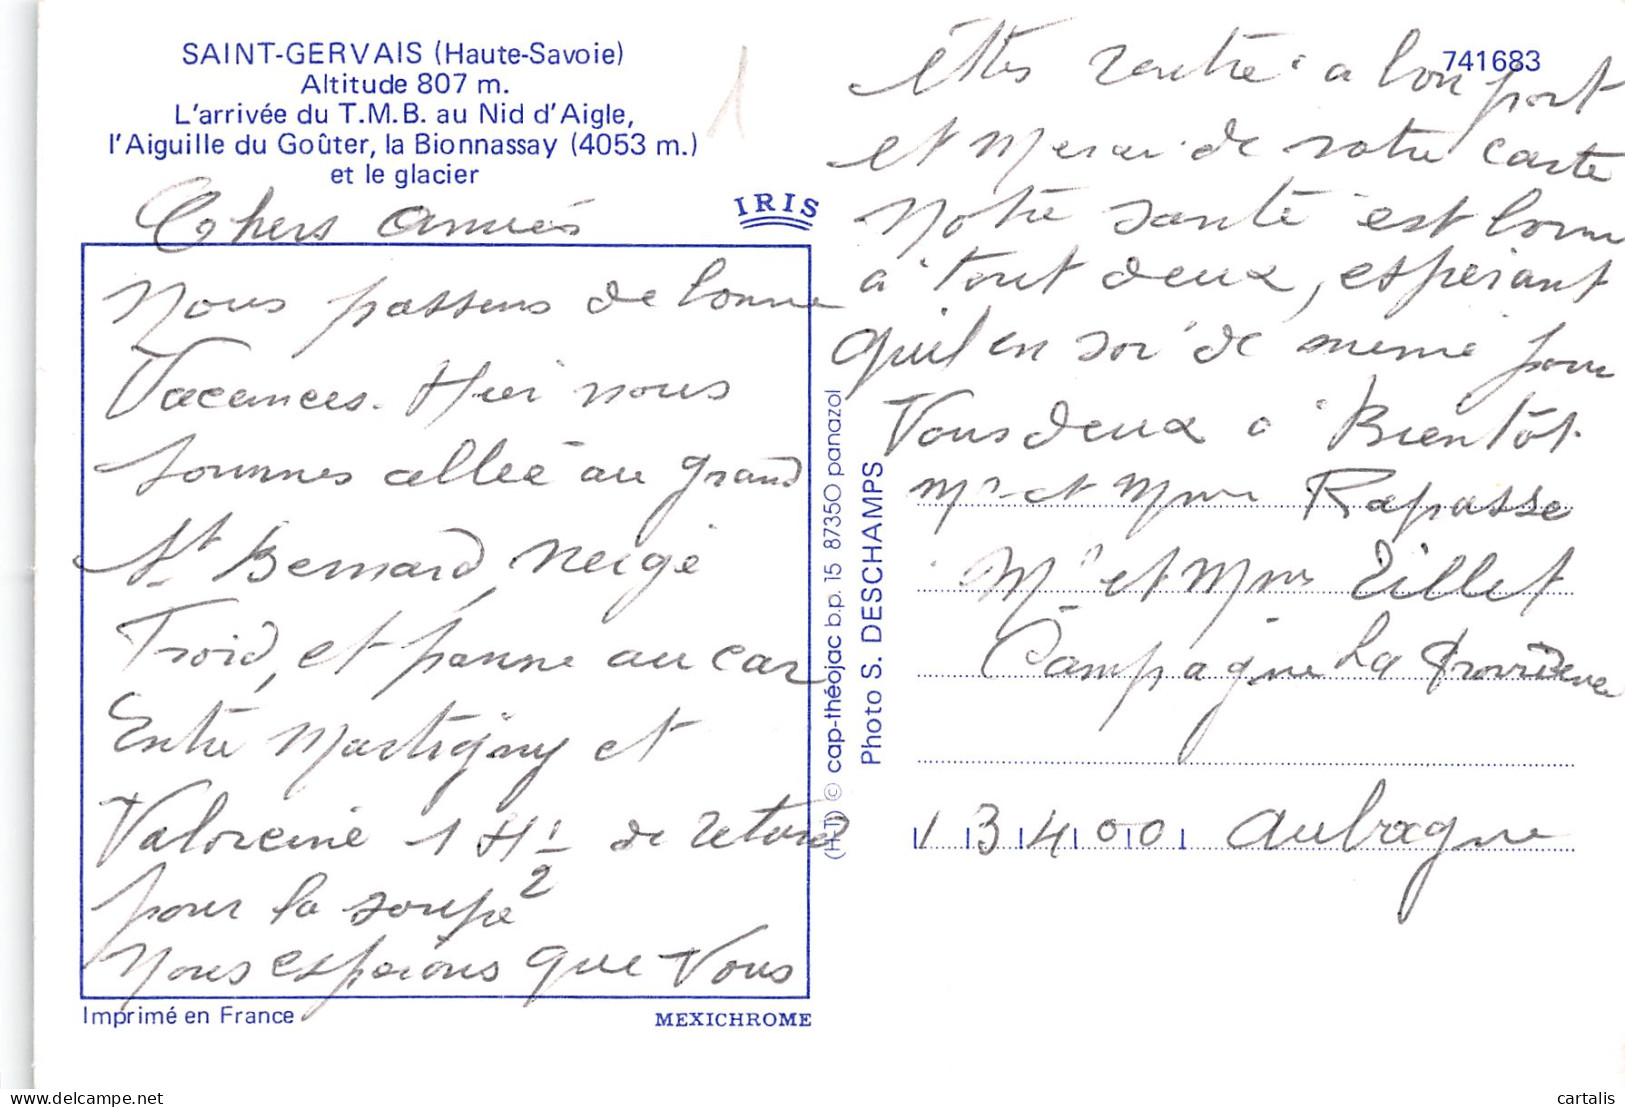 SAINT-GERVAIS (Haute-Savoie)
Altitude 807 m.
L'arrivée du T.M.B. au Nid d'Aigle,
l'Aiguille du Goûter, la Bionnassay (4053 m.)
et le glacier
1
IRIS
Chers amies
Nous passens de bonne
Vacances. Hier nous
sommes allée au grand
St Bernard, neige
Froid, et panne au car
Entre Martigny et
Valorcine 1 H 1/2 de retard
pour la soupe
Nous esperions que Vous
Imprimé en France
MEXICHROME
(H-T) © cap-théojac b.p. 15 87350 panazol
Photo S. DESCHAMPS
741683
êttes rentré a bon port
et Merci de votre carte
Notre santé est bonne
a tout deux, espérant
qu'il en soi de même pour
Vous deux a Bientôt.
Mr et Mme Rapasse
Mr et Mme Tillet
Campagne La Providence
13400 Aubagne
cartalis